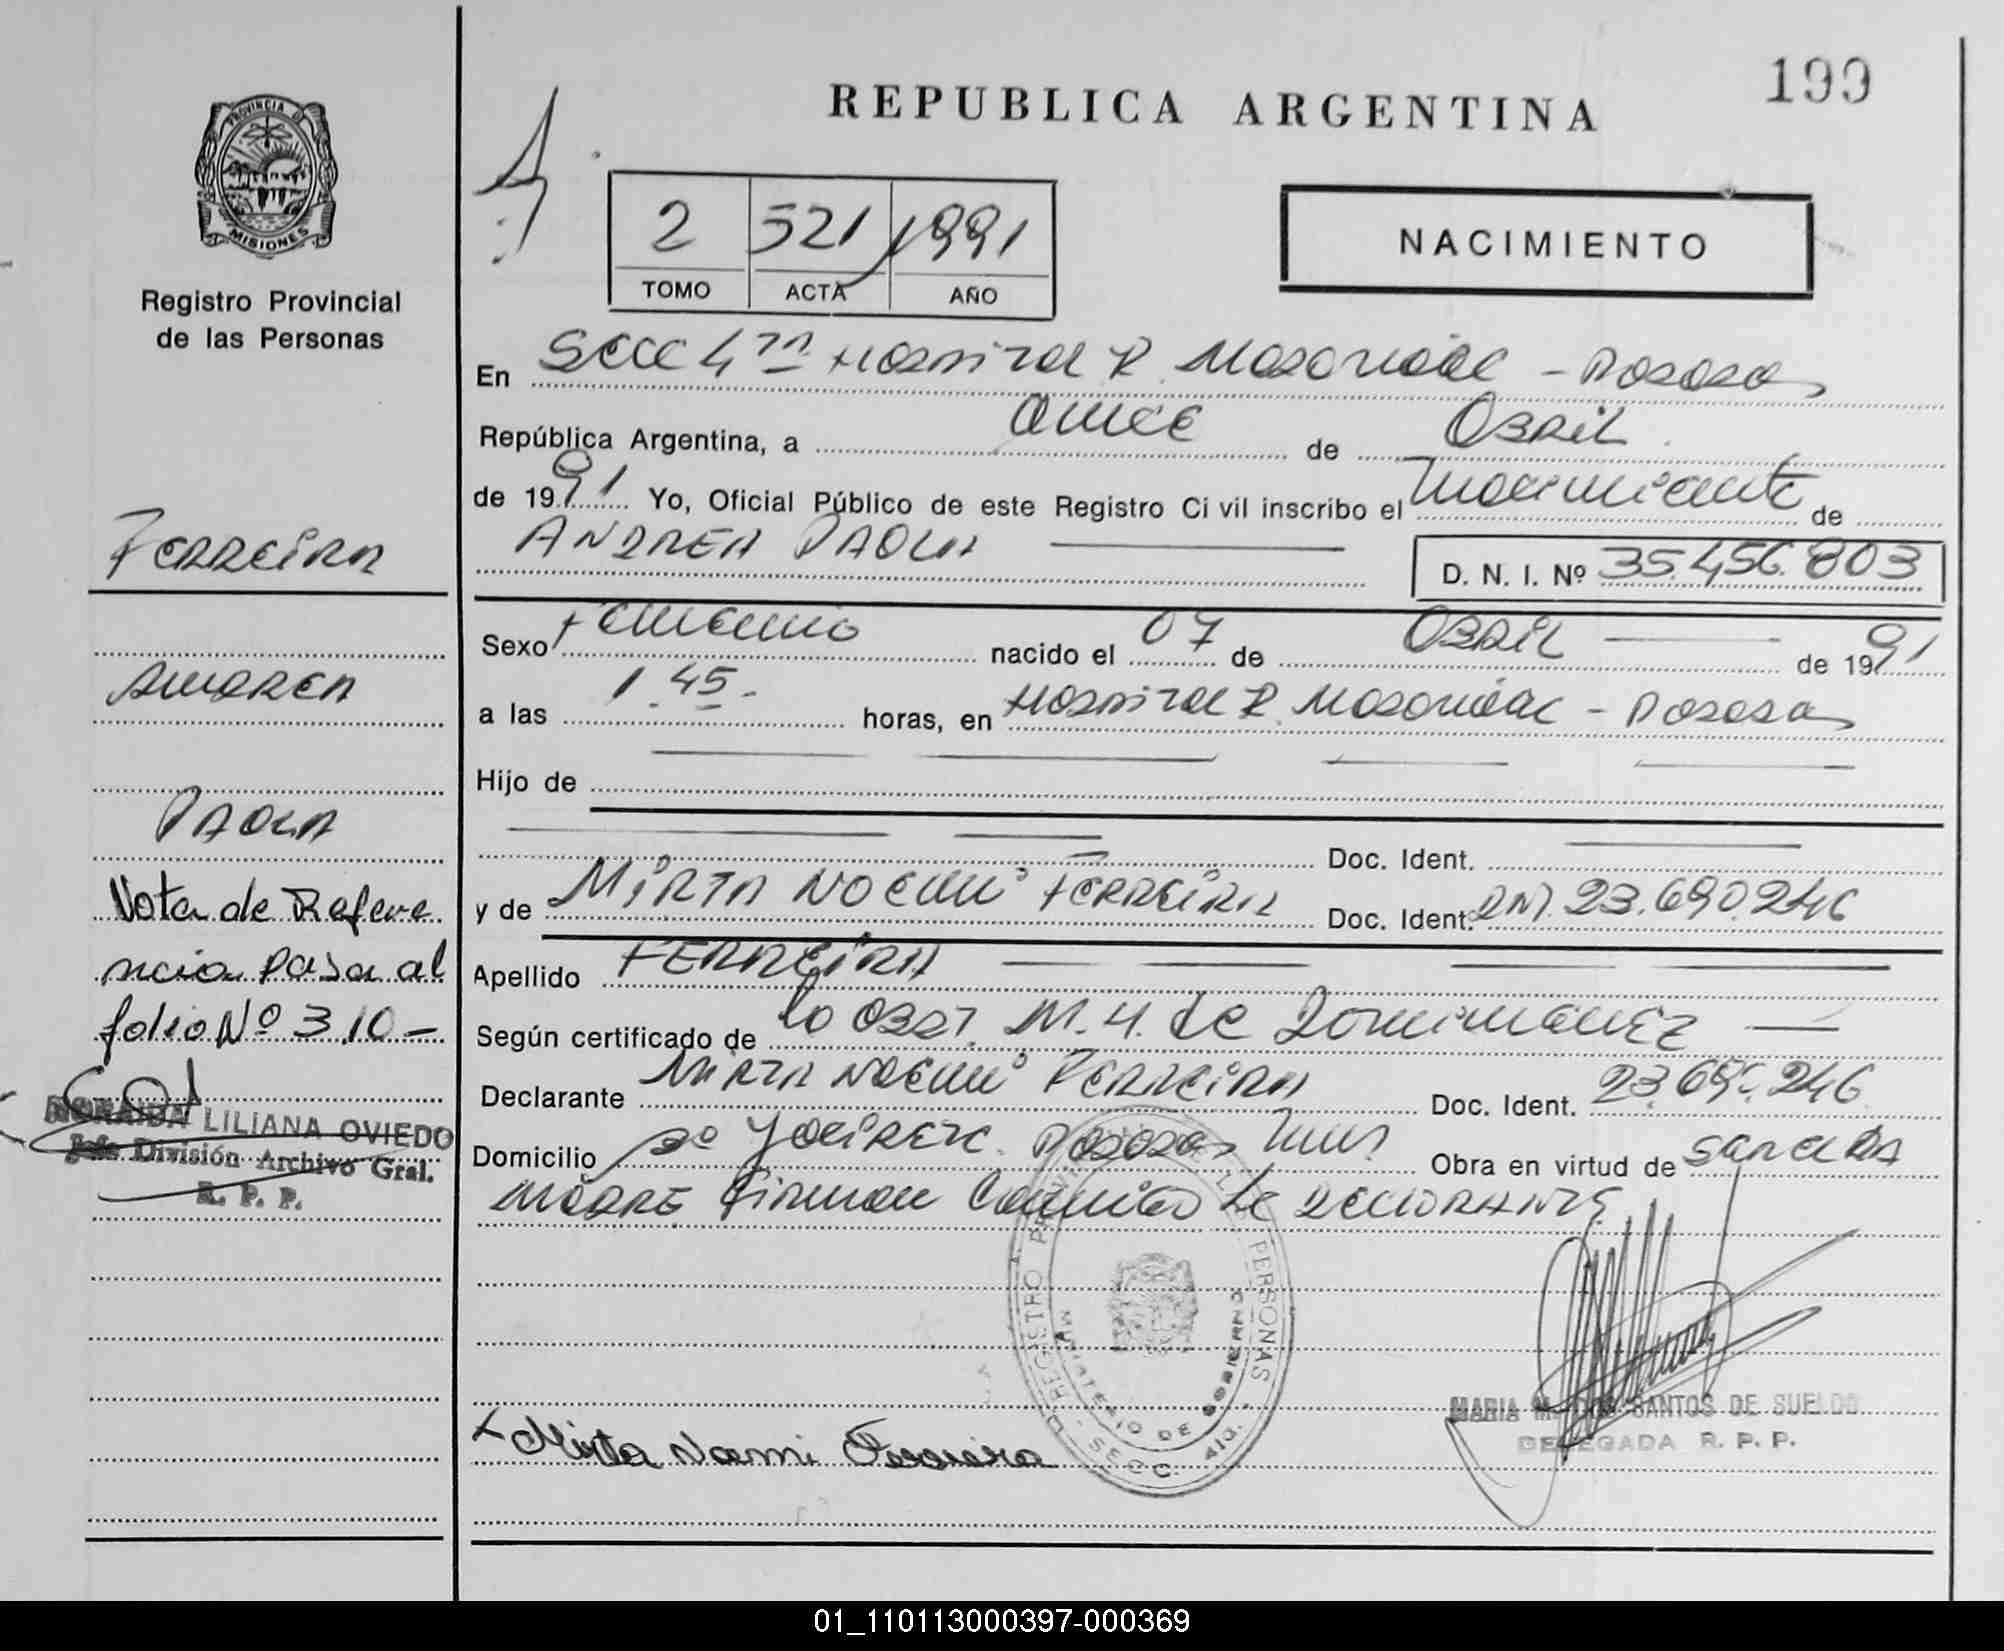 199
REPUBLICA ARGENTINA
PROVINCIA DE
MISIONES
Registro Provincial
de las Personas
2 521 1991
TOMO ACTA AÑO
NACIMIENTO
En Secc 4ta Hospital R. Madariaga - Posadas
República Argentina, a once de Abril
de 1991 Yo, Oficial Público de este Registro Civil inscribo el nacimiento de
ANDREA PAOLA
D. N. I. Nº 35.456.803
Sexo Femenino nacido el 07 de Abril de 1991
a las 1.45.- horas, en Hospital R. Madariaga - Posadas
Hijo de
Doc. Ident.
y de MIRTA NOEMI FERREIRA Doc. Ident. DNI. 23.690.246
Apellido FERREIRA
Según certificado de la Obst. M. H. de
Declarante MIRTA NOEMI FERREIRA Doc. Ident. 23.690.246
Domicilio Posadas Obra en virtud de ser la
MADRE Firman Conmigo la DECLARANTE
Ferreira
Andrea
PAOLA
Nota de Refere
ncia pasa al
folio Nº 310-
LILIANA OVIEDO
Jefe División Archivo Gral.
R. P. P.
REGISTRO PROVINCIAL PERSONAS
MINISTERIO DE GOBIERNO
SECC. 4ta.
Mirta Noemi Ferreira
MARIA M. DOS SANTOS DE SUELDO
DELEGADA R. P. P.
01_110113000397-000369